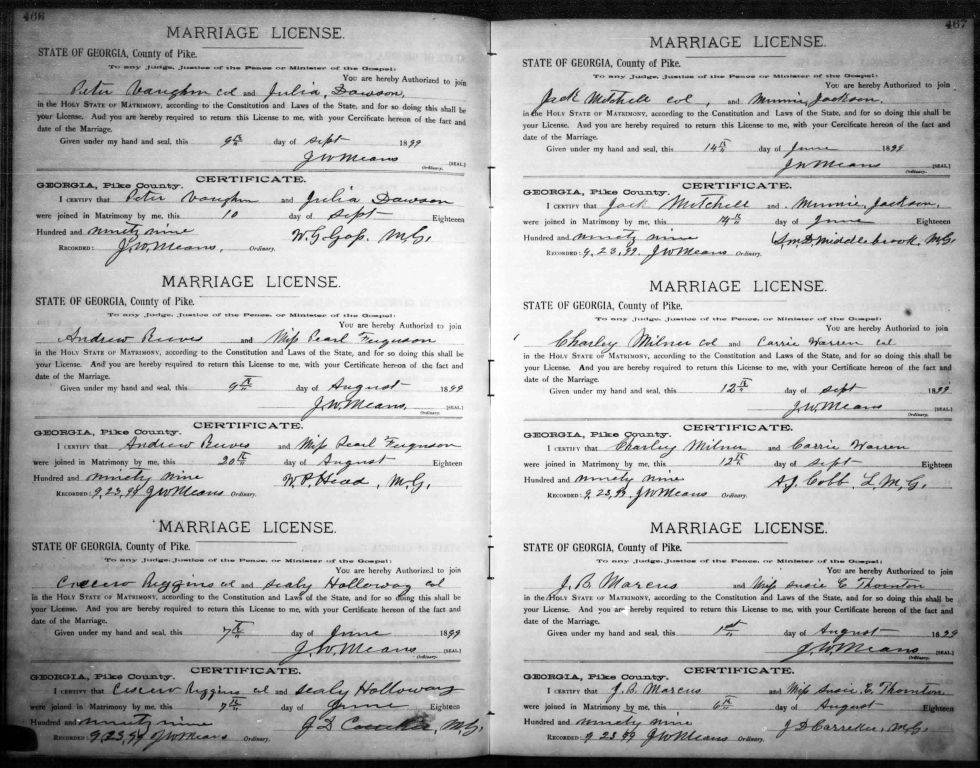 466
MARRIAGE LICENSE.
STATE OF GEORGIA, County of Pike.
To any Judge, Justice of the Peace or Minister of the Gospel:
You are hereby Authorized to join
Peter Vaughn col and Julia Dawson,
in the HOLY STATE OF MATRIMONY, according to the Constitution and Laws of the State, and for so doing this shall be
your License. And you are hereby required to return this License to me, with your Certificate hereon of the fact and
date of the Marriage.
Given under my hand and seal, this 9th day of Sept 1899
J.W. Means [SEAL]
Ordinary.
CERTIFICATE.
GEORGIA, Pike County.
I CERTIFY that Peter Vaughn and Julia Dawson
were joined in Matrimony by me, this 10 day of Sept Eighteen
Hundred and ninety nine W.G. Goss. M.G.
RECORDED: J.W. Means, Ordinary.
MARRIAGE LICENSE.
STATE OF GEORGIA, County of Pike.
To any Judge, Justice of the Peace, or Minister of the Gospel:
You are hereby Authorized to join
Andrew Reeves and Miss Pearl Ferguson
in the HOLY STATE OF MATRIMONY, according to the Constitution and Laws of the State, and for so doing this shall be
your License. And you are hereby required to return this License to me, with your Certificate hereon of the fact and
date of the Marriage.
Given under my hand and seal, this 9th day of August 1899
J.W. Means, [SEAL]
Ordinary.
CERTIFICATE.
GEORGIA, Pike County.
I CERTIFY that Andrew Reeves and Miss Pearl Ferguson
were joined in Matrimony by me, this 20th day of August Eighteen
Hundred and ninety nine W.P. Head, M.G.
RECORDED: 9.23.99 J.W. Means Ordinary.
MARRIAGE LICENSE.
STATE OF GEORGIA, County of Pike.
To any Judge, Justice of the Peace, or Minister of the Gospel:
You are hereby Authorized to join
Cicero Riggins col and Sealy Holloway col
in the HOLY STATE OF MATRIMONY, according to the Constitution and Laws of the State, and for so doing this shall be
your License. And you are hereby required to return this License to me, with your Certificate hereon of the fact and
date of the Marriage.
Given under my hand and seal, this 7th day of June 1899
J.W. Means [SEAL]
Ordinary.
CERTIFICATE.
GEORGIA, Pike County.
I CERTIFY that Cicero Riggins col and Sealy Holloway
were joined in Matrimony by me, this 7th day of June Eighteen
Hundred and ninety nine J D M.G.
RECORDED: 9,23,99 J W Means Ordinary.
467
MARRIAGE LICENSE.
STATE OF GEORGIA, County of Pike.
To any Judge, Justice of the Peace or Minister of the Gospel:
You are hereby Authorized to join
Jack Mitchell col, and Minnie Jackson.
in the HOLY STATE OF MATRIMONY, according to the Constitution and Laws of the State, and for so doing this shall be
your License. And you are hereby required to return this License to me, with your Cercificate hereon of the fact and
date of the Marriage.
Given under my hand and seal, this 14th day of June 1899
J W Means [SEAL]
Ordinary.
CERTIFICATE.
GEORGIA, Pike County.
I CERTIFY that Jack Mitchell and Minnie Jackson.
were joined in Matrimony by me, this 14th day of June Eighteen
Hundred and ninety nine Middlebrook, M.G.
RECORDED: 9,23,99. J W Means Ordinary.
MARRIAGE LICENSE.
STATE OF GEORGIA, County of Pike.
To any Judge, Justice of the Peace, or Minister of the Gospel:
You are hereby Authorized to join
Charley Milner col and Carrie Warren col
in the HOLY STATE OF MATRIMONY, according to the Constitution and Laws of the State, and for so doing this shall be
your License. And you are hereby required to return this License to me, with your Certificate hereon of the fact and
date of the Marriage.
Given under my hand and seal, this 12th day of Sept 1899
J.W. Means [SEAL]
Ordinary.
CERTIFICATE.
GEORGIA, Pike County.
I CERTIFY that Charley Milner and Carrie Warren
were joined in Matrimony by me, this 12th day of Sept Eighteen
Hundred and ninety nine A.J. Cobb. L.M.G.
RECORDED: 9.23,99. J W Means Ordinary.
MARRIAGE LICENSE.
STATE OF GEORGIA, County of Pike.
To any Judge, Justice of the Peace, or Minister of the Gospel:
You are hereby Authorized to join
J. B Marcus and Miss Susie E Thornton
in the HOLY STATE OF MATRIMONY, according to the Constitution and Laws of the State, and for so doing this shall be
your License. And you are hereby required to return this License to me, with your Certificate hereon of the fact and
date of the Marriage.
Given under my hand and seal, this 1st day of August 1899
J.W. Means [SEAL]
Ordinary.
CERTIFICATE.
GEORGIA, Pike County.
I CERTIFY that J. B. Marcus and Miss Susie E. Thornton
were joined in Matrimony by me, this 6th day of August Eighteen
Hundred and ninety nine J D Carreker, M.G.
RECORDED: 9 23,99 J W Means Ordinary.